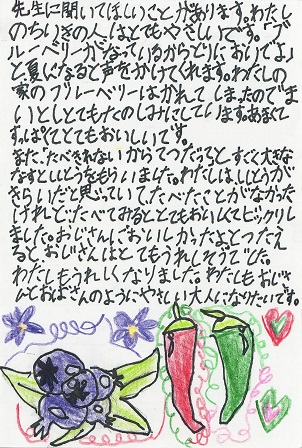 先生に聞いてほしいことがあります。わたし
のちいきの人はとてもやさしいです。「ブ
ルーベリーがなっているからとりにおいでよ」
と夏になると声をかけてくれます。わたしの
家のブルーベリーはかれてしまったのでま
いとしとてもたのしみにしています。あまくて
すっぱくてとてもおいしいです。
また、たべきれないからてつだってと、すごく大きな
なすとししとうをもらいました。わたしは、ししとうが
きらいだと思っていて、たべたことがなかった
けれど、たべてみるととてもおいしくてビックリし
ました。おじさんにおいしかったよとつたえ
ると、おじさんはとてもうれしそうでした。
わたしもうれしくなりました。わたしもおじさ
んとおばさんのようにやさしい大人になりたいです。